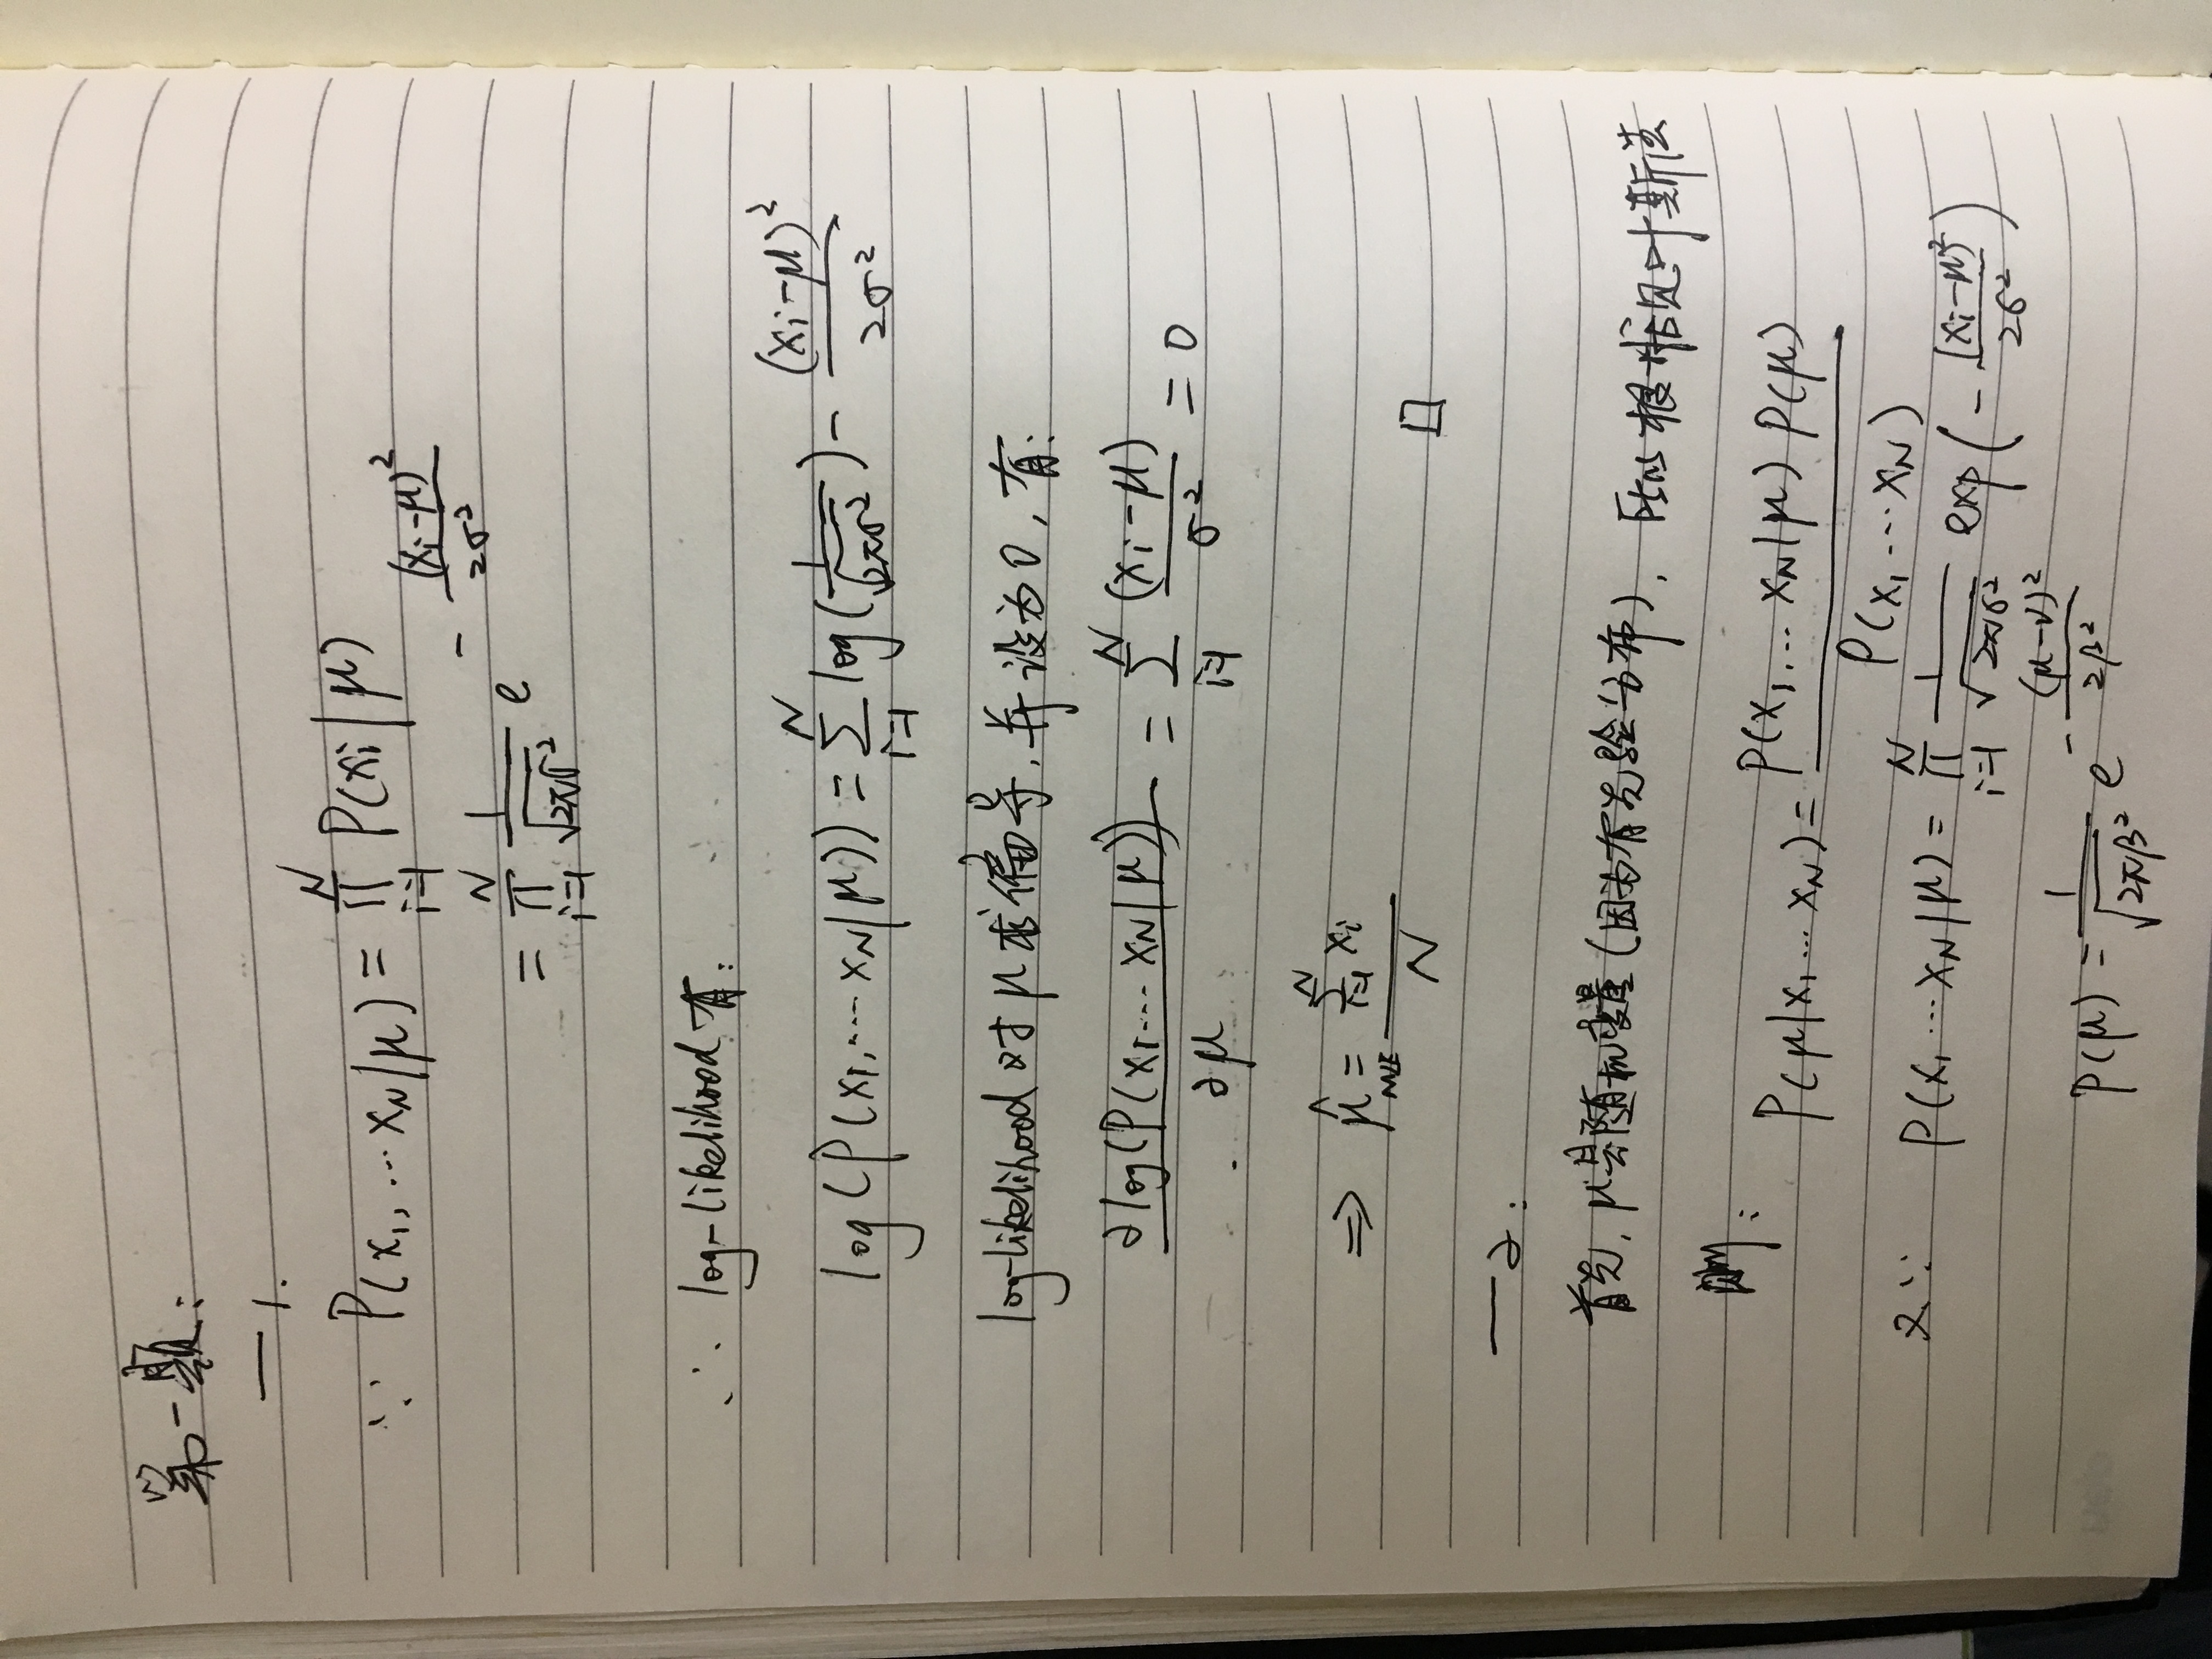 第一题:
— 1.
∵ P(x₁,…xN|μ) = ∏_{i=1}^{N} P(xi|μ)
= ∏_{i=1}^{N} \frac{1}{\sqrt{2πσ²}} e^{-\frac{(xi-μ)²}{2σ²}}
∴ log-likelihood 有:
log(P(x₁,…xN|μ)) = ∑_{i=1}^{N} log(\frac{1}{\sqrt{2πσ²}}) - \frac{(xi-μ)²}{2σ²}
log-likelihood 对 μ 求偏导, 并设为0, 有:
\frac{∂log(P(x₁…xN|μ))}{∂μ} = ∑_{i=1}^{N} \frac{(xi-μ)}{σ²} = 0
⇒ \hat{μ}_{MLE} = \frac{∑_{i=1}^{N} xi}{N} □
— 2.
首先, μ是随机变量(因为有先验分布), 所以根据贝叶斯法
则:
P(μ|x₁…xN) = \frac{P(x₁,…xN|μ) P(μ)}{P(x₁…xN)}
又∵ P(x₁…xN|μ) = ∏_{i=1}^{N} \frac{1}{\sqrt{2πσ²}} exp(-\frac{(xi-μ)²}{2σ²})
P(μ) = \frac{1}{\sqrt{2πβ²}} e^{-\frac{(μ-ν)²}{2β²}}